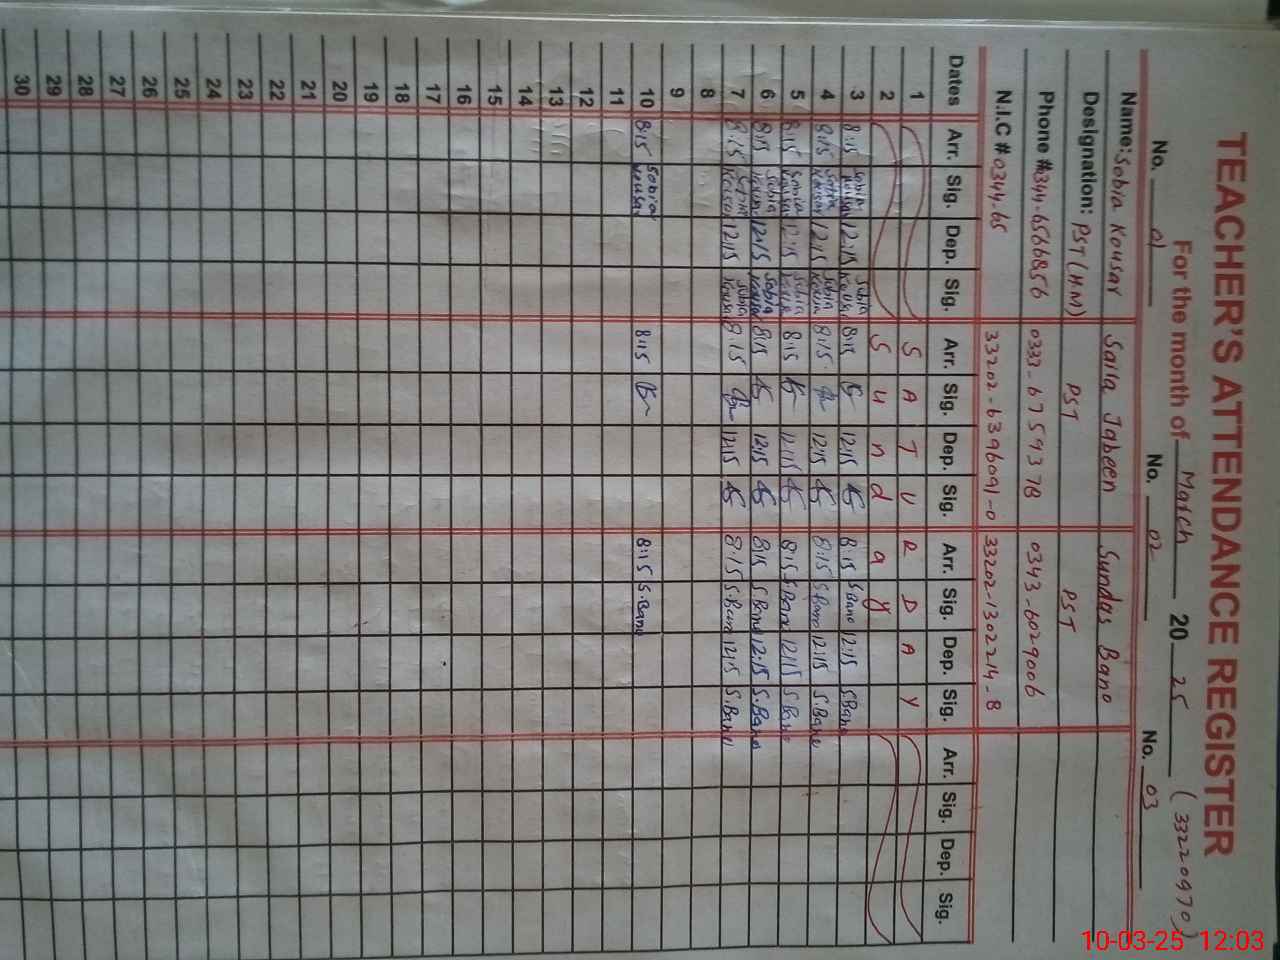 TEACHER'S ATTENDANCE REGISTER
For the month of March 20 25 (33220970)
No. 01 No. 02 No. 03
Name: Sobia Kousar Saila Jabeen Sundas Bano
Designation: PST (H.M) PST PST
Phone # 0344-6566856 0333-6759378 0343-6029006
N.I.C # 0344-65 33202-6396091-0 33202-1302214-8
Dates Arr. Sig. Dep. Sig. Arr. Sig. Dep. Sig. Arr. Sig. Dep. Sig. Arr. Sig. Dep. Sig.
1 S A T U R D A Y
2 S u n d a y
3 8:15 Sobia Kousar 12:15 Sobia Kousar 8:15 12:15 8:15 S.Bano 12:15 S.Bano
4 8:15 Sobia Kousar 12:15 Sobia Kousar 8:15 12:15 8:15 S.Bano 12:15 S.Bano
5 8:15 Sobia Kousar 12:15 Sobia Kousar 8:15 12:15 8:15 S.Bano 12:15 S.Bano
6 8:15 Sobia Kousar 12:15 Sobia Kousar 8:15 12:15 8:15 S.Bano 12:15 S.Bano
7 8:15 Sobia Kousar 12:15 Sobia Kousar 8:15 12:15 8:15 S.Bano 12:15 S.Bano
8
9
10 8:15 Sobia Kousar 8:15 8:15 S.Bano
11
12
13
14
15
16
17
18
19
20
21
22
23
24
25
26
27
28
29
30
10-03-25 12:03